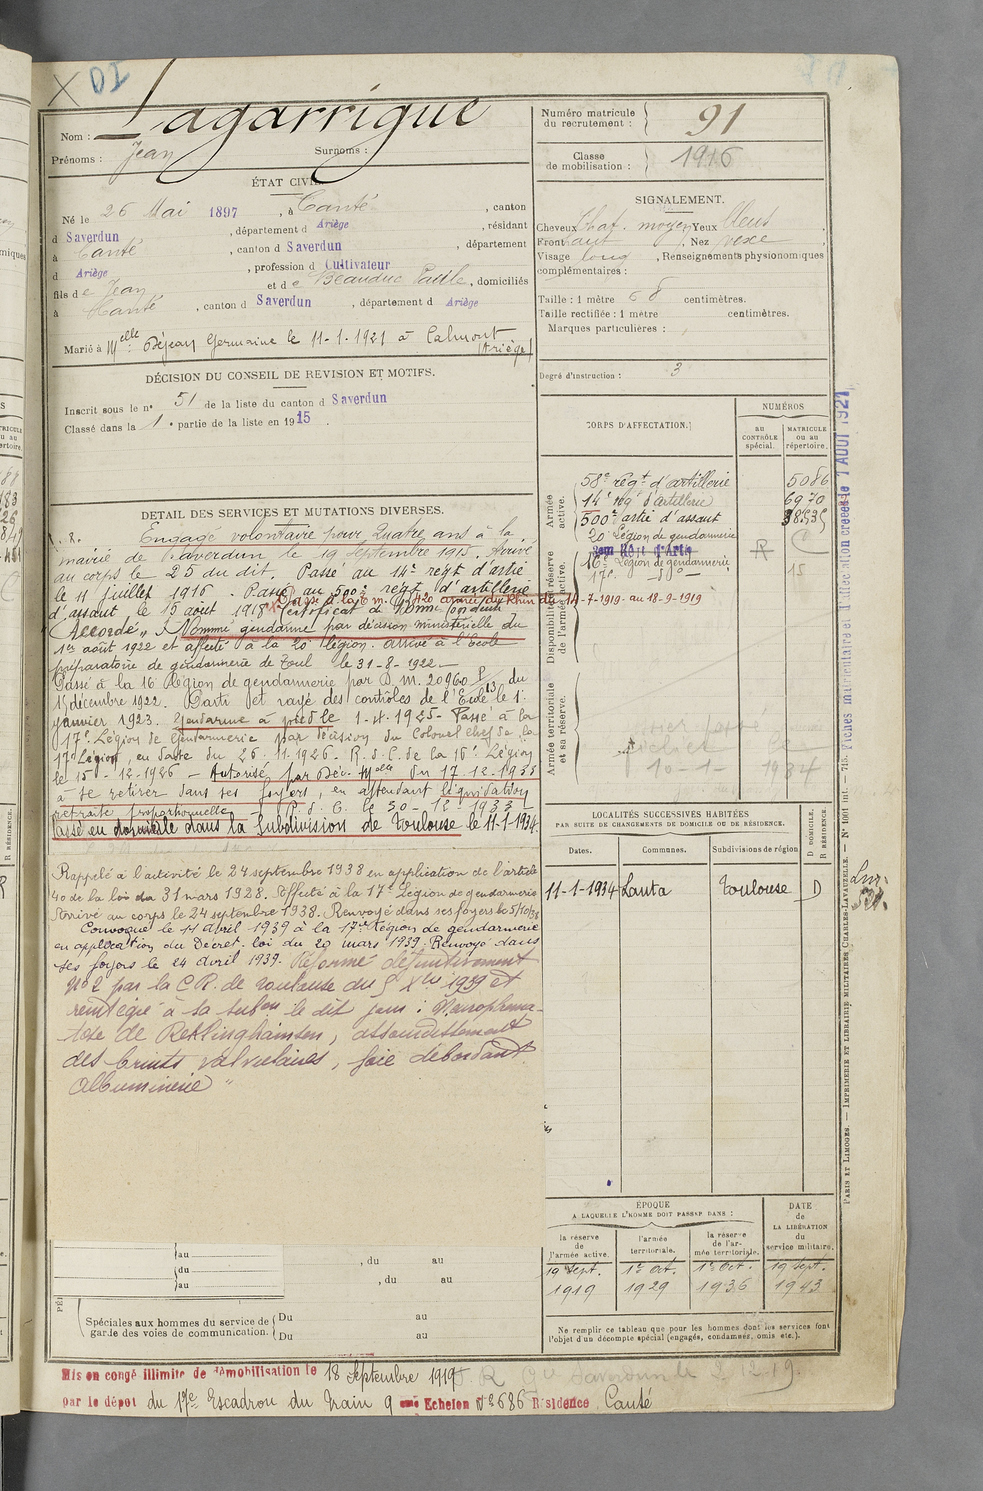 X DI
Nom : Lagarrigue
Prénoms : Jean Surnoms :
Numéro matricule du recrutement : 91
Classe de mobilisation : 1916
ÉTAT CIVIL.
Né le 26 Mai 1897, à Canté, canton
d Saverdun, département d Ariège, résidant
à Canté, canton d Saverdun, département
d Ariège, profession d Cultivateur
fils de Jean et de Beauduc Paule, domiciliés
à Canté, canton d Saverdun, département d Ariège
Marié à Melle Déjean Germaine le 11-1-1921 à Calmont
(Ariège)
SIGNALEMENT.
Cheveux Chat. moyen Yeux bleus
Front haut, Nez vexe
Visage long, Renseignements physionomiques
complémentaires :
Taille : 1 mètre 68 centimètres.
Taille rectifiée : 1 mètre centimètres.
Marques particulières :
Degré d'instruction : 3
DÉCISION DU CONSEIL DE REVISION ET MOTIFS.
Inscrit sous le n° 51 de la liste du canton d Saverdun
Classé dans la 1e partie de la liste en 1915.
DETAIL DES SERVICES ET MUTATIONS DIVERSES.
Engagé volontaire pour Quatre ans à la
mairie de Saverdun le 19 Septembre 1915. Arrivé
au corps le 25 du dit. Passé au 14e regt d'artie
le 11 juillet 1916. Passé au 500e regt d'artillerie
d'assaut le 15 aout 1918. Certificat de Bonne Conduite
armée du Rhin du 14-7-1919 au 18-9-1919
"Accordé". Nommé gendarme par décision ministérielle du
1er août 1922 et affecté à la 20e légion. arrivé à l'Ecole
préparatoire de gendarmerie de Toul le 31-8-1922.
Passé à la 16e Légion de gendarmerie par D. m. 20960 du
15 décembre 1922. Parti et rayé des contrôles de l'Ecole le 1er
janvier 1923. Gendarme à pied le 1-4-1925. Passé à la
17e Légion de Gendarmerie par décision du Colonel chef de la
17e Légion, en date du 26-11-1926. R.d.C. de la 16e Légion
le 15-12-1926 - Autorisé par Déc. Mlle du 17-12-1933
à se retirer dans ses foyers, en attendant liquidation
retraite proportionnelle R.d.C. le 30-12-1933
Passé en domicile dans la Subdivision de Toulouse le 11-1-1934.
Rappelé à l'activité le 24 septembre 1938 en application de l'article
40 de la loi du 31 mars 1928. Affecté à la 17e Légion de gendarmerie
Arrivé au corps le 24 septembre 1938. Renvoyé dans ses foyers le 5/10/38
Convoqué le 11 avril 1939 à la 17e Légion de gendarmerie
en application du Décret-loi du 20 mars 1939. Renvoyé dans
ses foyers le 24 avril 1939. Réformé définitivement
n° 2 par la C.R. de Toulouse du 5 Xbre 1939 et
réintégré à sa subon le dit jour : Neurofibroma-
tose de Reklinghainsen, assourdissement
des bruits valvulaires, foie débordant
albuminerie"
CORPS D'AFFECTATION.
NUMÉROS
au CONTRÔLE spécial.
MATRICULE ou au répertoire.
Armée active.
58e régt d'artillerie 5086
14e rég' d'artillerie 6970
500e artie d'assaut
20e Légion de gendarmerie
Disponibilité et réserve de l'armée active.
16e Légion de gendarmerie R C
17e -do- 15
Armée territoriale et sa réserve.
10-1-1934
LOCALITÉS SUCCESSIVES HABITÉES
PAR SUITE DE CHANGEMENTS DE DOMICILE OU DE RÉSIDENCE.
Dates. Communes. Subdivisions de région
D DOMICILE. R RÉSIDENCE.
11-1-1934 Lanta Toulouse D
ÉPOQUE
A LAQUELLE L'HOMME DOIT PASSER DANS :
DATE de LA LIBÉRATION du service militaire.
la réserve de l'armée active.
l'armée territoriale.
la réserve de l'armée territoriale.
19 Sept. 1er Oct. 1er Oct. 19 Sept.
1919 1929 1936 1943
Ne remplir ce tableau que pour les hommes dont les services font
l'objet d'un décompte spécial (engagés, condamnés, omis etc.).
au , du au
du , du au
au
Spéciales aux hommes du service de garde des voies de communication.
Du au
Du au
Mis en congé illimité de démobilisation le 18 Septembre 1919
par le dépôt du 17e Escadron du Train 9 ème Echelon N° 686 Résidence Canté
Fiches matriculaire et d'allocation créées le 1 AOUT 1921
PARIS ET LIMOGES. — IMPRIMERIE ET LIBRAIRIE MILITAIRES CHARLES-LAVAUZELLE. — N° 1901 int. — 715.